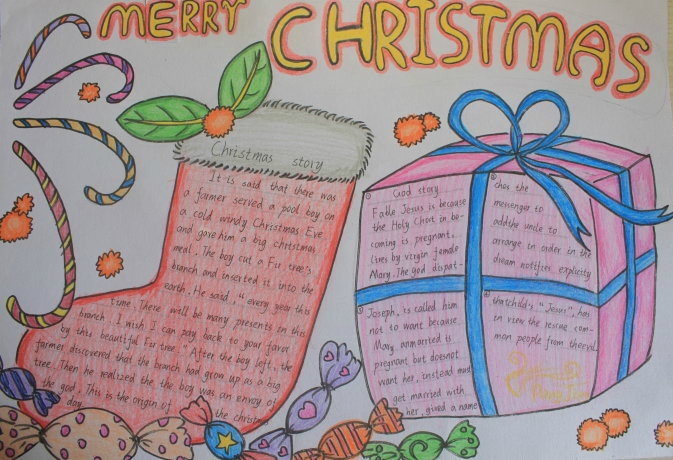 MERRY CHRISTMAS
Christmas story
It is said that there was
a farmer served a pool boy on
a cold windy Christmas Eve
and gave him a big christmas
meal. The boy cut a Fir tree's
branch and inserted it into the
earth. He said, "every year this
time, There will be many presents in this
branch. I wish I can pay back to your favor
by this beautiful Fir tree." After the boy left, the
farmer discovered that the branch had grown up as a big
tree. Then he realized the the boy was an envoy of
the god. This is the origin of the christmas
day.
① God story
Fable Jesus is because
the Holy Ghost in be-
coming is pregnant,
lives by virgin female
Mary. The god dispat-
② ches the
messenger to
addthe unile to
arrange in order in the
dream notifies explicity
③ Joseph, is called him
not to want because
Mary unmarried is
pregnant but doesnot
want her, instead must
get married with
her, gived a name
④ thatchild's "Jesus", has
in view the rescue com-
mon people from theevil.